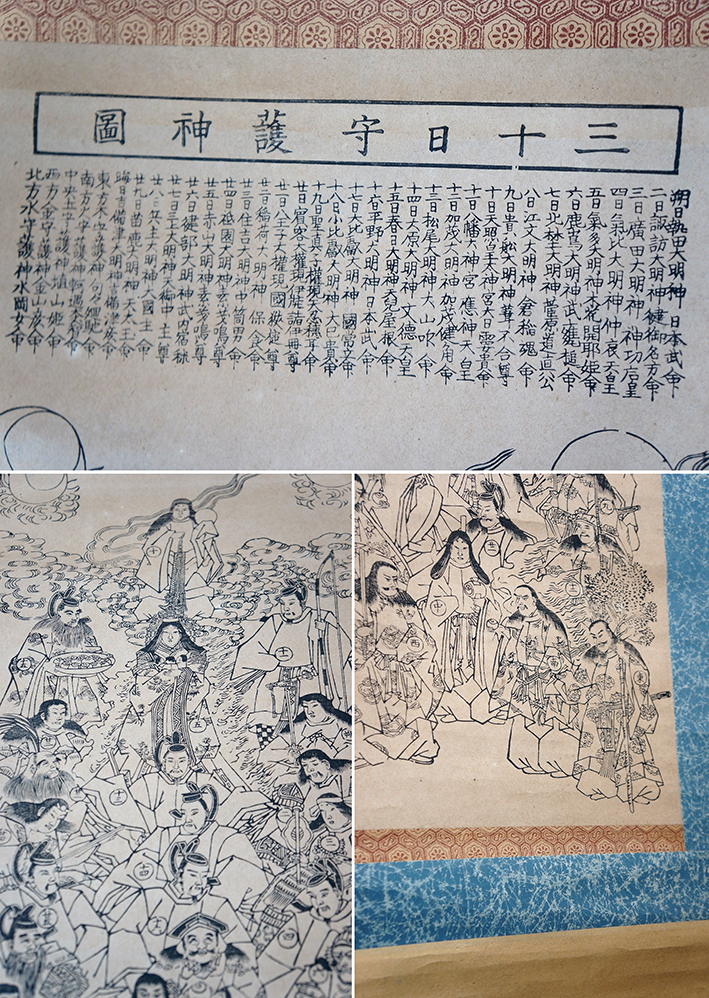 三十日守護神圖
朔日熱田大明神 日本武命
二日諏訪大明神 健御名方命
三日廣田大明神 神功后皇
四日氣比大明神 仲哀天皇
五日氣多大明神 木花開耶姫命
六日鹿嶌大明神 武甕槌命
七日北埜大明神 菅原道真公
八日江文大明神 倉稲魂命
九日貴舩大明神 葺不合尊
十日天照皇太神宮 大日孁貴命
十一日八幡大神宮 應神天皇
十二日加茂大明神 加茂健角命
十三日松尾大明神 大山咋命
十四日大原大明神 文徳天皇
十五日春日大明神 天兒屋根命
十六日平野大明神 日本武命
十七日大比叡大明神 國常立命
十八日小比叡大明神 大己貴命
十九日聖真子權現 天忍穂耳命
廿日客人大權現 伊弉諾冊尊
廿一日八王子大權現 國狭槌尊
廿二日稲荷大明神 保食命
廿三日住吉大明神 中筒男命
廿四日祇園大明神 素盞嗚尊
廿五日赤山大明神 素盞嗚尊
廿六日健部大明神 武内宿祢
廿七日三上大明神 天御中主尊
廿八日兵主大明神 大國主命
廿九日苗鹿大明神 天太玉命
晦日吉備津大明神 吉備津彦命
東方木守護神 句々廼馳命
南方火守護神 軻遇突智命
中央土守護神 埴山姫命
西方金守護神 金山彦命
北方水守護神 水岡女命